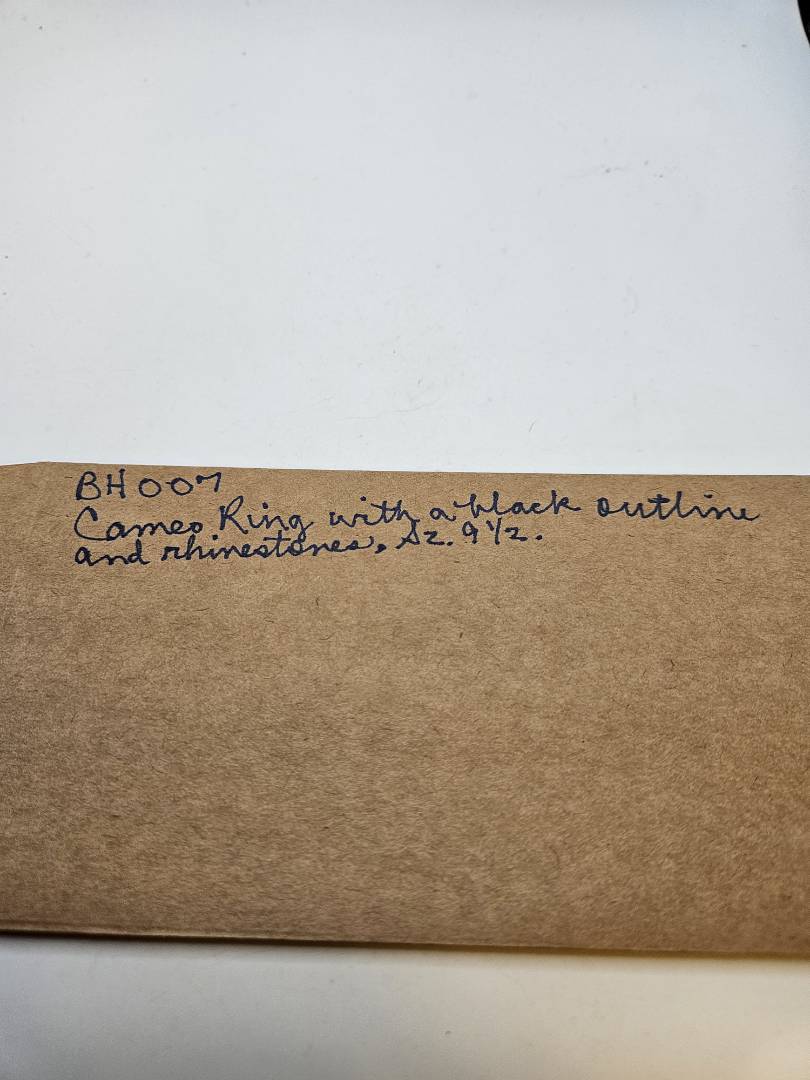 BH007
Cameo Ring with a black outline
and rhinestones, Sz. 9 1/2.